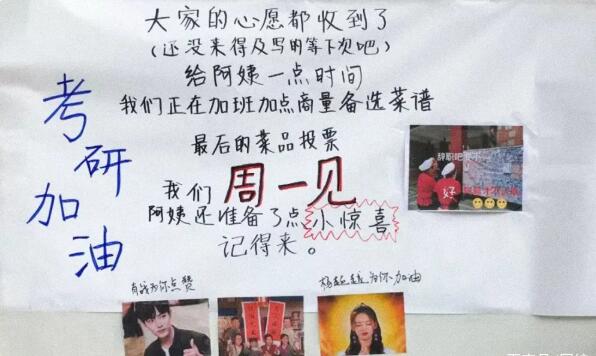 大家的心愿都收到了
(还没来得及写的等下次吧)
给阿姨一点时间
我们正在加班加点商量备选菜谱
最后的菜品投票
我们周一见
阿姨还准备了点小惊喜
记得来。
考研加油
辞职吧
好
肖战为你点赞
杨超越为你加油